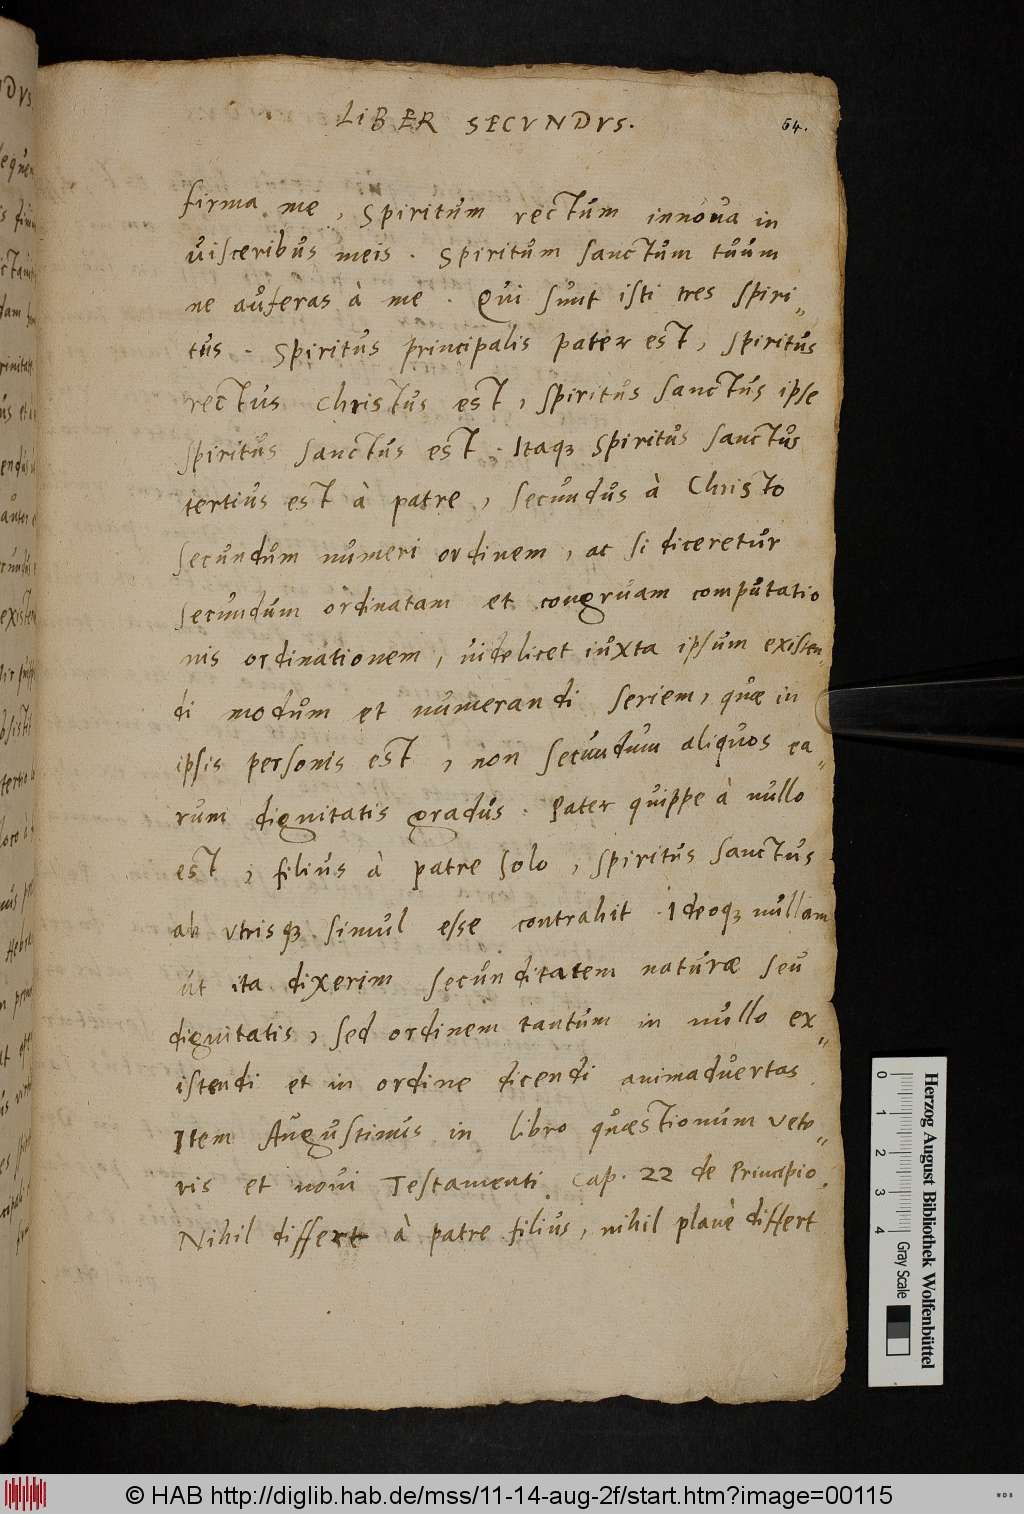 LIBER SECVNDVS.
64.
firma me, Spiritum rectum innoua in
uisceribus meis. Spiritum sanctum tuum
ne auferas à me. Qui sunt isti tres spiri"
tus. Spiritus principalis pater est, spiritus
rectus Christus est, spiritus sanctus ipse
spiritus sanctus est. Itaqꝫ Spiritus sanctus
tertius est à patre, secundus à Christo
secundum numeri ordinem, ac si diceretur
secundum ordinatam et congruam computatio
nis ordinationem, uidelicet iuxta ipsum existen"
di modum et numerandi seriem, quæ in
ipsis personis est, non secundum aliquos ea"
rum dignitatis gradus. Pater quippe à nullo
est, filius à patre solo, spiritus sanctus
ab vtrisqꝫ simul esse contrahit. Ideoqꝫ nullam
ut ita dixerim secunditatem naturæ seu
dignitatis, sed ordinem tantum in nullo ex"
istendi et in ordine dicendi animaduertas.
Item Augustinus in libro quæstionum vete"
ris et noui Testamenti cap. 22 de Principio.
Nihil differt à patre filius, nihil planè differt
0 1 2 3 4
Gray Scale
Herzog August Bibliothek Wolfenbüttel
© HAB http://diglib.hab.de/mss/11-14-aug-2f/start.htm?image=00115